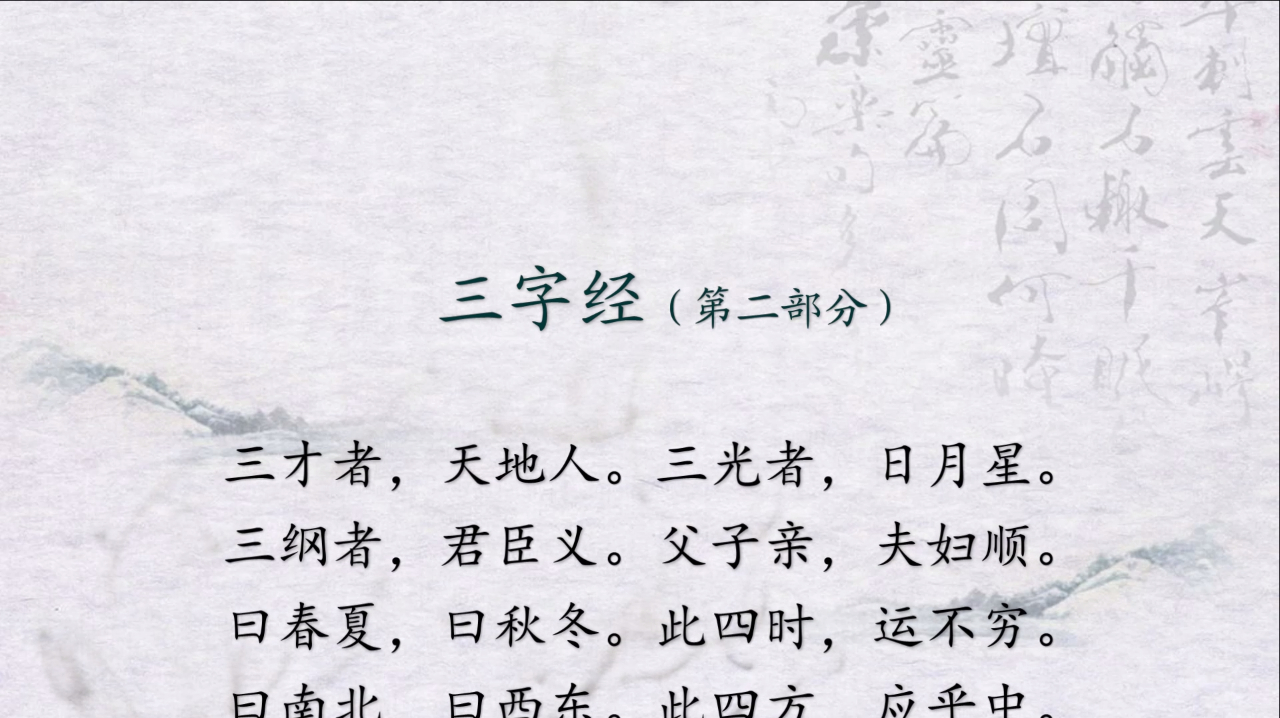 三字经（第二部分）
三才者，天地人。三光者，日月星。
三纲者，君臣义。父子亲，夫妇顺。
曰春夏，曰秋冬。此四时，运不穷。
曰南北，曰西东。此四方，应乎中。